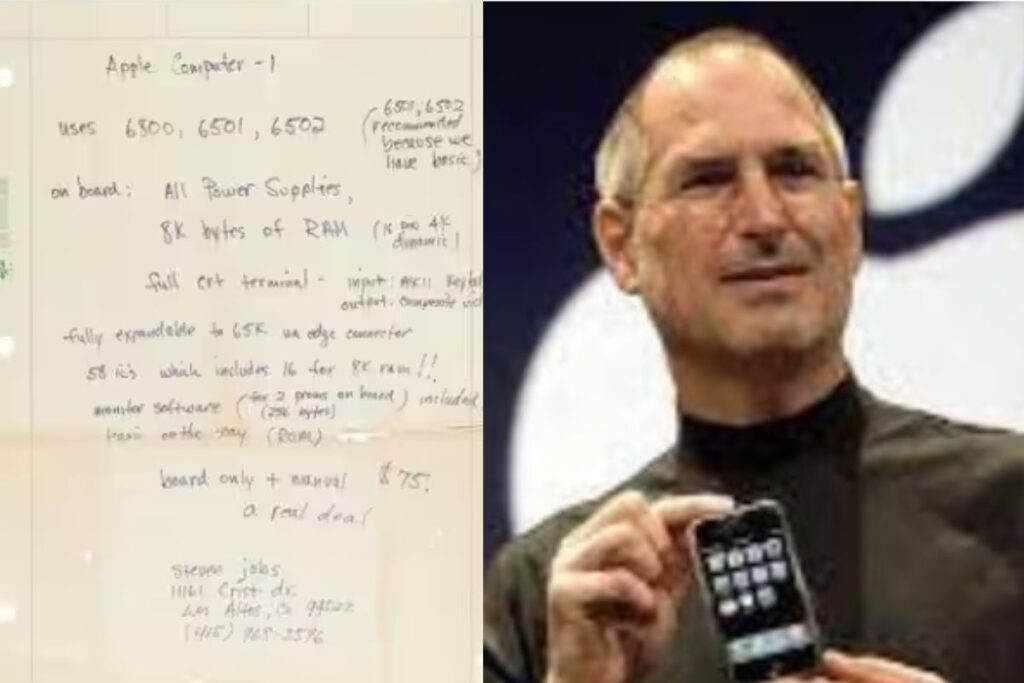 Apple Computer - 1
uses 6800, 6501, 6502
(6501, 6502
recommended
because we
have basic)
on board: All Power Supplies,
8K bytes of RAM (16 pin 4K
dynamic)
full crt terminal - input: ASCII Keyb
output: composite vid
fully expandable to 65K via edge connector
58 ic's which includes 16 for 8K ram!!
monitor software (for 2 proms on board) included
(256 bytes)
basic on the way (ROM)
board only + manual $75.
a real deal
steven jobs
11161 Crist dr.
Los Altos, Ca 94022
(415) 968-3596